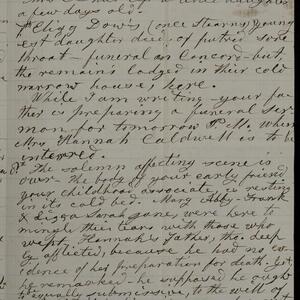 a few days old.
Eliza Dow's, (once Stearns) young
est daughter died, of putrid sore
throat — funeral in Concord — but
the remains lodged in their cold
narrow house, here.
While I am writing — your fa
ther is preparing a funeral ser
mon for tomorrow P.M. when
Mrs. Hannah Caldwell is to be
interred.
The solemn affecting scene is
over. The body of your early friend,
your childhood associate, is resting
in its cold bed. Mary Abby — Frank
& Sarah Jane, were here to
mingle their tears with those who
wept. Hannah's father, tho. deep
ly afflicted, because he had no evi
dence of her preparation for death. Yet,
he remarked — he supposed he ought
to equally submissive, to the will of